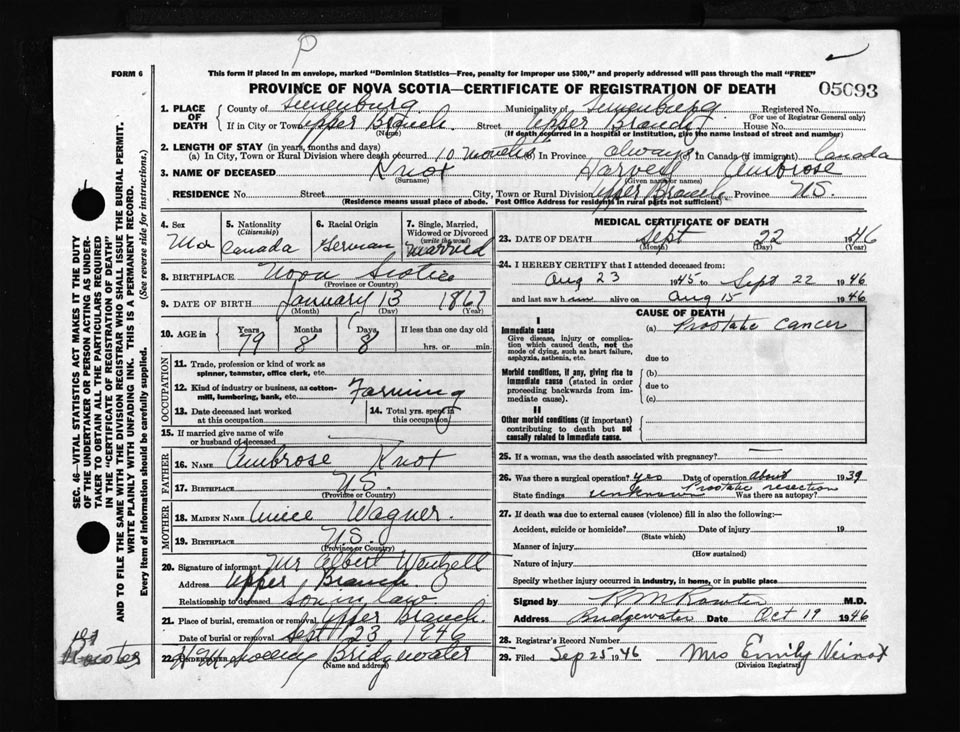 P
FORM 6
This form if placed in an envelope, marked "Dominion Statistics—Free, penalty for improper use $300," and properly addressed will pass through the mail "FREE"
PROVINCE OF NOVA SCOTIA—CERTIFICATE OF REGISTRATION OF DEATH
05093
1. PLACE OF DEATH
County of Lunenburg Municipality of Lunenburg Registered No.
(For use of Registrar General only)
If in City or Town Upper Branch. Street Upper Branch House No.
(Name) (If death occurred in a hospital or institution, give the name instead of street and number)
2. LENGTH OF STAY (in years, months and days)
(a) In City, Town or Rural Division where death occurred 10 Months In Province always In Canada (if immigrant) Canada
3. NAME OF DECEASED Knot Harvey Ambrose
(Surname) (Given name or names)
RESIDENCE No. Street City, Town or Rural Division Upper Branch Province N.S.
(Residence means usual place of abode. Post Office Address for residents in rural parts not sufficient)
4. Sex
5. Nationality (Citizenship) Canada
6. Racial Origin German
7. Single, Married, Widowed or Divorced (write the word) Married
8. BIRTHPLACE Nova Scotia
(Province or Country)
9. DATE OF BIRTH January 13 1867
(Month) (Day) (Year)
10. AGE in Years 79 Months 8 Days 8 If less than one day old
hrs. or min.
OCCUPATION
11. Trade, profession or kind of work as spinner, teamster, office clerk, etc.
12. Kind of industry or business, as cotton-mill, lumbering, bank, etc. Farming
13. Date deceased last worked at this occupation
14. Total yrs. spent in this occupation
15. If married give name of wife or husband of deceased
FATHER
16. NAME Ambrose Knot
17. BIRTHPLACE N.S.
(Province or Country)
MOTHER
18. MAIDEN NAME Wagner.
19. BIRTHPLACE N.S.
(Province or Country)
20. Signature of informant Mr Albert Wentzell
Address Upper Branch
Relationship to deceased Son in law.
21. Place of burial, cremation or removal Upper Branch.
Date of burial or removal Sept 23 1946
22. UNDERTAKER Bridgewater
(Name and address)
MEDICAL CERTIFICATE OF DEATH
23. DATE OF DEATH Sept 22 1946
(Month) (Day) (Year)
24. I HEREBY CERTIFY that I attended deceased from:
Aug 23 1945 to Sept 22 1946
and last saw him alive on Aug 15 1946
CAUSE OF DEATH
I
Immediate cause (a) Prostatic cancer
Give disease, injury or complication which caused death, not the mode of dying, such as heart failure, asphyxia, asthenia, etc.
due to
Morbid conditions, if any, giving rise to immediate cause (stated in order proceeding backwards from immediate cause).
(b)
due to
(c)
II
Other morbid conditions (if important) contributing to death but not causally related to immediate cause.
25. If a woman, was the death associated with pregnancy?
26. Was there surgical operation? Yes Date of operation About 1939
Prostatic resection
State findings unknown Was there an autopsy?
27. If death was due to external causes (violence) fill in also the following:—
Accident, suicide or homicide? Date of injury 19
(State which)
Manner of injury
(How sustained)
Nature of injury
Specify whether injury occurred in industry, in home, or in public place
Signed by M.D.
Address Bridgewater Date Oct 19 1946
28. Registrar's Record Number
29. Filed Sep 25 1946 Mrs Emily
(Division Registrar)
SEC. 46—VITAL STATISTICS ACT MAKES IT THE DUTY
OF THE UNDERTAKER OR PERSON ACTING AS UNDER-
TAKER TO OBTAIN ALL THE PARTICULARS REQUIRED
IN THE "CERTIFICATE OF REGISTRATION OF DEATH"
AND TO FILE THE SAME WITH THE DIVISION REGISTRAR WHO SHALL ISSUE THE BURIAL PERMIT.
WRITE PLAINLY WITH UNFADING INK. THIS IS A PERMANENT RECORD.
Every item of information should be carefully supplied. (See reverse side for instructions.)